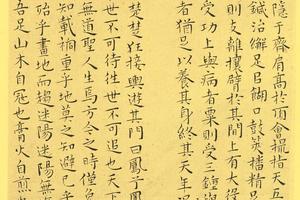 隱于齊肩高於頂會撮指天五
鍼治繲足以餬口鼓筴播精足
則支離攘臂於其間上有大役
受功上與病者粟則受三鍾與
者猶足以養其身終其天年況
楚楚狂接輿遊其門曰鳳兮鳳
世不可待往世不可追也天下
無道聖人生焉方今之時僅免
知載禍重乎地莫之知避已乎
殆乎畫地而趨迷陽迷陽無
吾足山木自寇也膏火自煎也